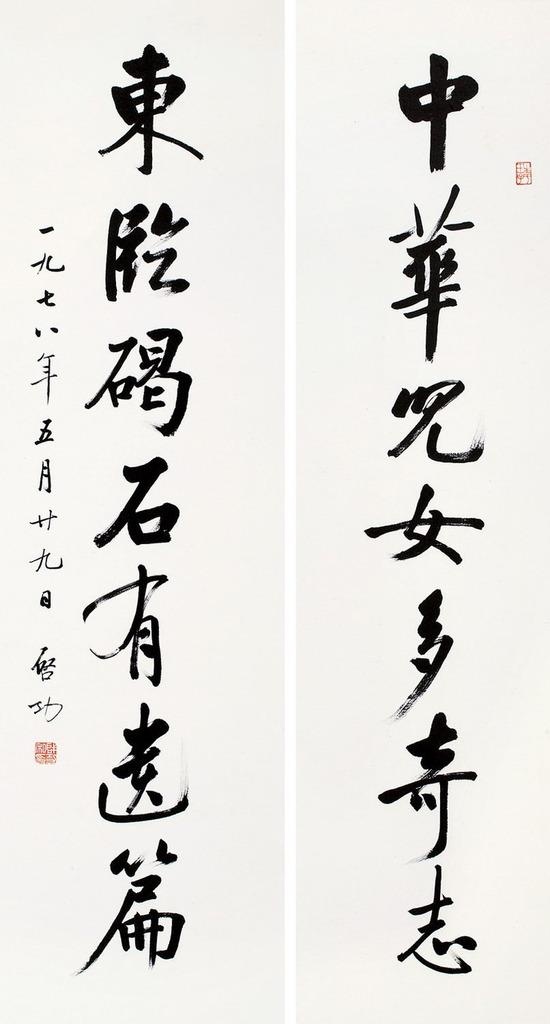 中華兒女多奇志
東臨碣石有遺篇
一九七八年五月廿九日 啓功